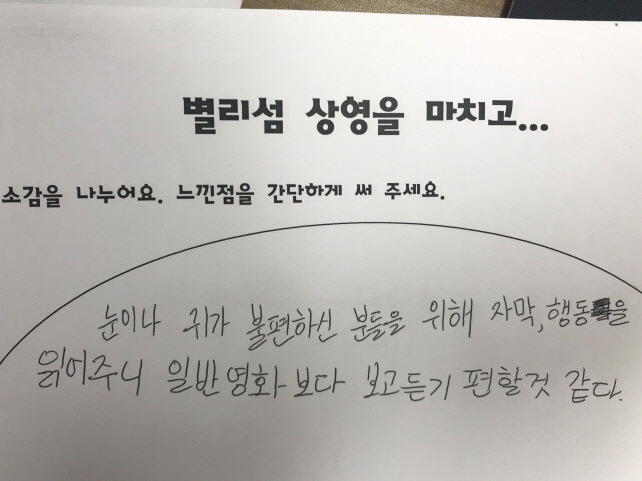 별리섬 상영을 마치고...
소감을 나누어요. 느낀점을 간단하게 써 주세요.
눈이나 귀가 불편하신 분들을 위해 자막, 행동을
읽어주니 일반영화보다 보고듣기 편할것 같다.